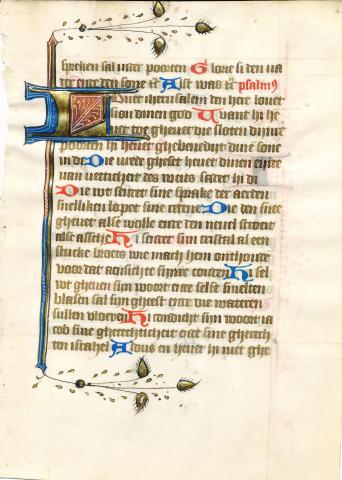 spreken sal inder poorten Glorie si den va
der ende den sone etc Alst was etc psalmus
Lovet iherusalem den here lovet
sion dinen god Want hi he
vet toe ghevest die sloten dinre
poorten hi hevet ghebenedijt dine sone
in di Die vrede gheset hevet dinen einde
van vetticheit des weits sadet hi di
Die wt sendet sine sprake der aerden
snelliken lopet sine redene Die den snee
ghevet alse wolle ende den nevel stroiet
alse assche Hi sendet sijn cristal als een
stucke broots wie mach hem onthouden
voor dat aensichte sijnre couden Hi sel
wt gheven sijn woort ende selse smelten
blasen sal sijn gheest ende die wateren
sullen vloeyen Hi condicht sijn woort ia
cob sine gherechticheit ende sine gherech
ten israhel Aldus en hevet hi niet ghe